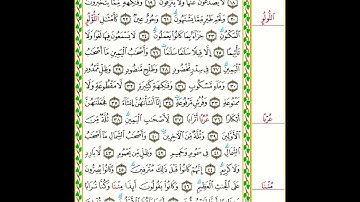 لَّا يُصَدَّعُونَ عَنْهَا وَلَا يُنزِفُونَ ۝ وَفَٰكِهَةٍ مِّمَّا يَتَخَيَّرُونَ
وَلَحْمِ طَيْرٍ مِّمَّا يَشْتَهُونَ ۝ وَحُورٌ عِينٌ ۝ كَأَمْثَٰلِ ٱللُّؤْلُوِٕ
ٱلْمَكْنُونِ ۝ جَزَآءًۢ بِمَا كَانُوا۟ يَعْمَلُونَ ۝ لَا يَسْمَعُونَ فِيهَا لَغْوًا وَلَا
تَأْثِيمًا ۝ إِلَّا قِيلًا سَلَٰمًا سَلَٰمًا ۝ وَأَصْحَٰبُ ٱلْيَمِينِ مَآ أَصْحَٰبُ
ٱلْيَمِينِ ۝ فِى سِدْرٍ مَّخْضُودٍ ۝ وَطَلْحٍ مَّنضُودٍ ۝ وَظِلٍّ مَّمْدُودٍ
وَمَآءٍ مَّسْكُوبٍ ۝ وَفَٰكِهَةٍ كَثِيرَةٍ ۝ لَّا مَقْطُوعَةٍ وَلَا
مَمْنُوعَةٍ ۝ وَفُرُشٍ مَّرْفُوعَةٍ ۝ إِنَّآ أَنشَأْنَٰهُنَّ إِنشَآءً ۝ فَجَعَلْنَٰهُنَّ
أَبْكَارًا ۝ عُرُبًا أَتْرَابًا ۝ لِّأَصْحَٰبِ ٱلْيَمِينِ ۝ ثُلَّةٌ مِّنَ
ٱلْأَوَّلِينَ ۝ وَثُلَّةٌ مِّنَ ٱلْءَاخِرِينَ ۝ وَأَصْحَٰبُ ٱلشِّمَالِ مَآ أَصْحَٰبُ
ٱلشِّمَالِ ۝ فِى سَمُومٍ وَحَمِيمٍ ۝ وَظِلٍّ مِّن يَحْمُومٍ ۝ لَّا بَارِدٍ
وَلَا كَرِيمٍ ۝ إِنَّهُمْ كَانُوا۟ قَبْلَ ذَٰلِكَ مُتْرَفِينَ ۝ وَكَانُوا۟ يُصِرُّونَ
عَلَى ٱلْحِنثِ ٱلْعَظِيمِ ۝ وَكَانُوا۟ يَقُولُونَ أَئِذَا مِتْنَا وَكُنَّا تُرَابًا
ٱللُّؤْلُوِٕ
عُرُبًا
مِتْنَا